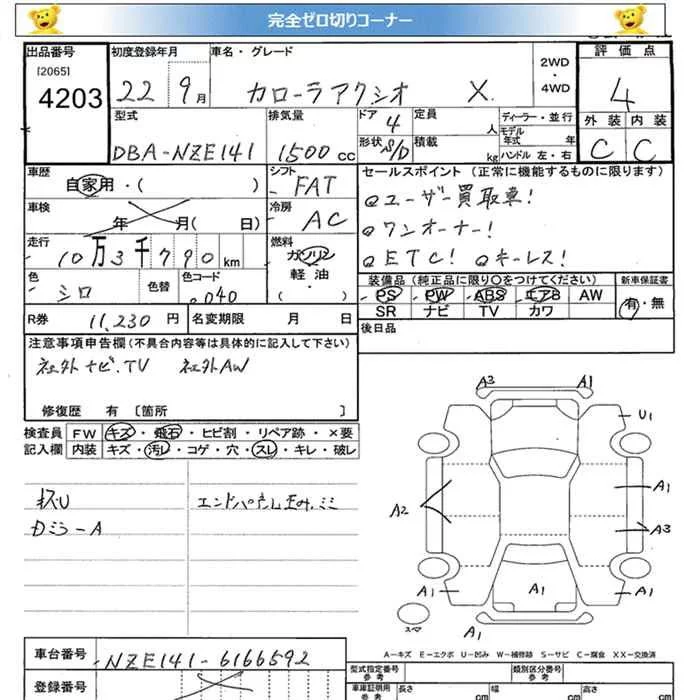 完全ゼロ切りコーナー
出品番号 初度登録年月 車名・グレード 2WD・4WD 評価点
[2065]
4203 22 9月 カローラアクシオ X. 4
型式 排気量 ドア 4 定員 人 ディーラー・並行 外装 内装
モデル年式 年
DBA-NZE141 1500cc 形状 S/D 積載 kg ハンドル 左・右 C C
車歴 シフト セールスポイント(正常に機能するものに限ります)
自家用・( ) FAT ユーザー買取車!
車検 冷房 ワンオーナー!
年 月( 日) AC ETC! キーレス!
走行 燃料
10万3千790km ガソリン
軽油
・( )
色 色替 色コード 装備品(純正品に限り〇をつけてください) 新車保証書
シロ 040 PS PW ABS エアB AW 有・無
SR ナビ TV カワ
R券 11,230円 名変期限 月 日 後日品
注意事項申告欄(不具合内容等は具体的に記入して下さい)
社外ナビ.TV 社外AW
修復歴 有 [箇所 ]
検査員 FW キズ・飛石・ヒビ割・リペア跡・×要
記入欄 内装 キズ・汚レ・コゲ・穴・スレ・キレ・破レ
A3 A1
U1
A2 A1
A3
A1 A1 A1
A1
スペア
ミラーA
A-キズ E-エクボ U-凹み W-補修跡 S-サビ C-腐食 XX-交換済
車台番号 NZE141-6166592
型式指定番号 参考 類別区分番号 参考
登録番号 車庫証明用 参考 長さ cm 幅 cm 高さ cm